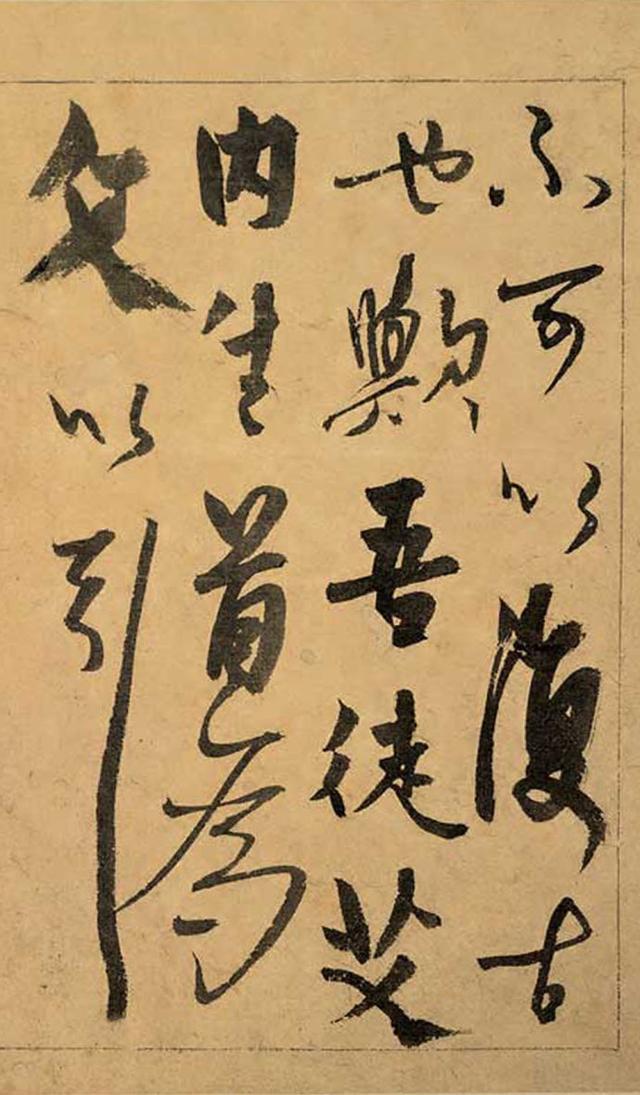 不可以復古
也歟吾徒艾
內生道為
文以引